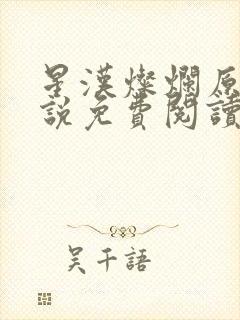 星漢燦爛原
說免費閱讀
吴千語